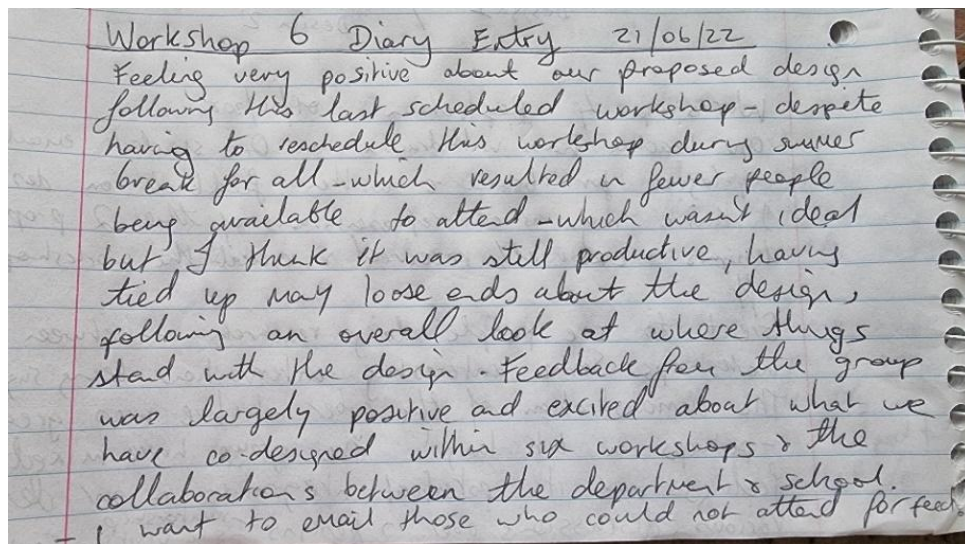 Workshop 6 Diary Entry 21/06/22
Feeling very positive about our proposed design
following this last scheduled workshop - despite
having to reschedule this workshop during summer
break for all - which resulted in fewer people
being available to attend - which wasn't ideal
but I think it was still productive, having
tied up many loose ends about the design,
following an overall look at where things
stand with the design. Feedback from the group
was largely positive and excited about what we
have co-designed within six workshops & the
collaborations between the department & school.
- I want to email those who could not attend for feed